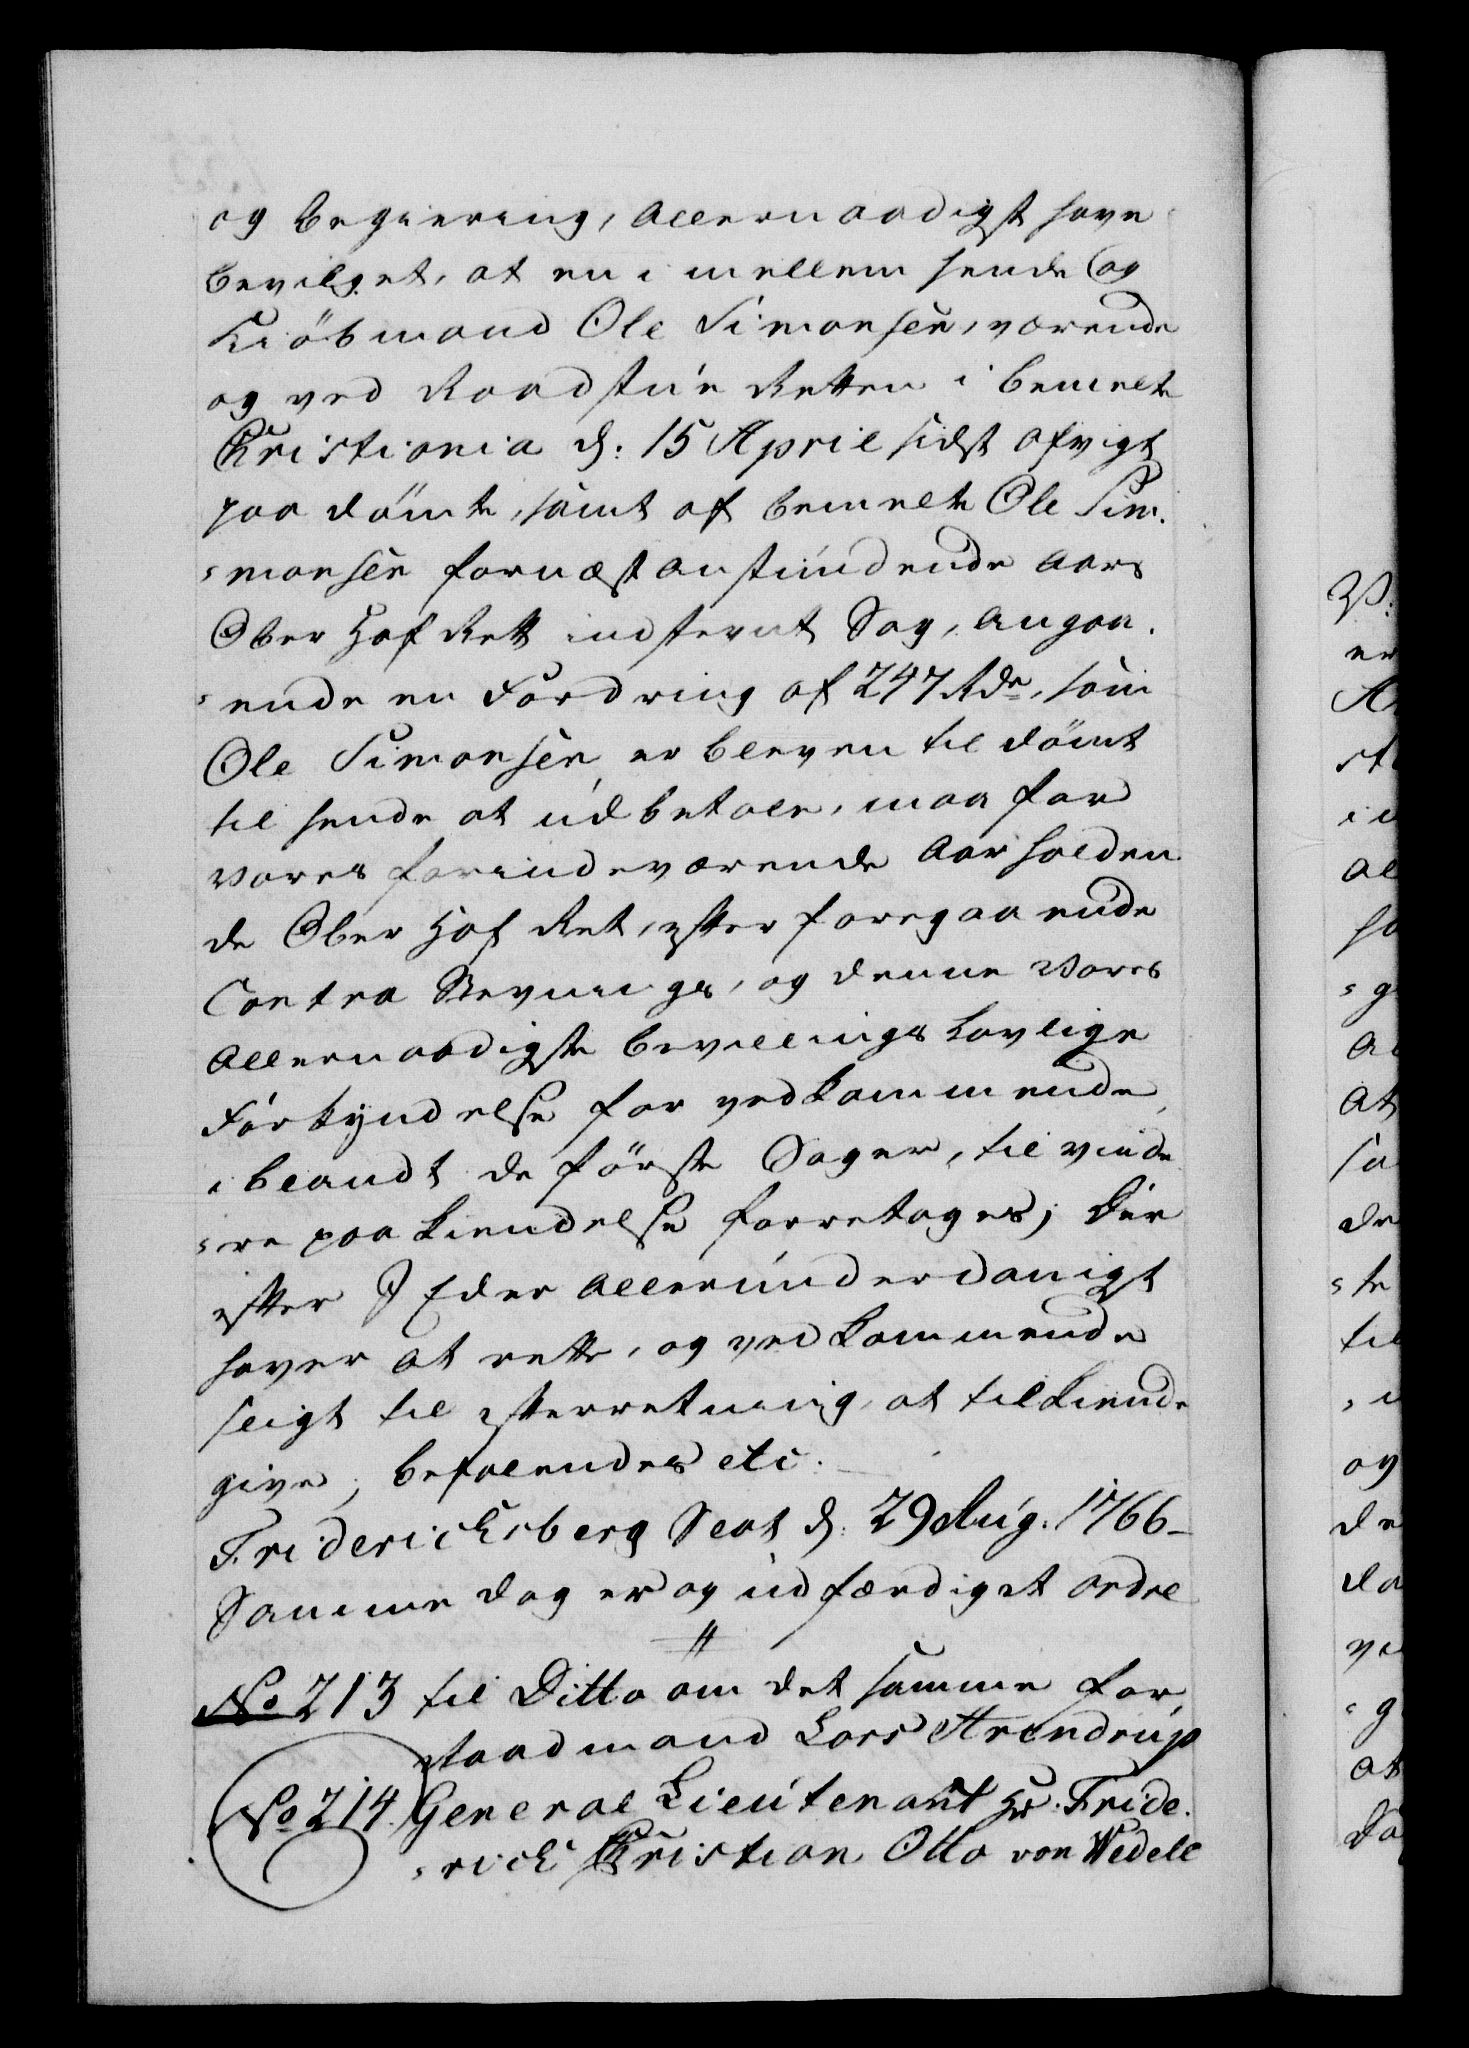 og begiering, allernaadigst have
bevilget, at en imellem hende og
Kiöbmand Ole Simonsen, værende
og ved Raadstue Retten i bemelte
Christiania d: 15 April sidst afvigt
paa dömte, samt af bemelte Ole Sim-
=monsen for næstanstundende Aars
Ober Hof Rett indstevnt Sag, angaa-
=ende en Fordring af 247 Rdr, som
Ole Simonsen er bleven til dömt
til hende at udbetale, maa for
vores for indeværende Aar holden
de Ober Hof Ret, efter foregaaende
Contra Stevnings, og denne vores
allernaadigste bevillings lovlige
Forkyndelse for vedkommende,
iblandt de förste Sager, til vide
=re paakiendelse forretages; Der
efter I Eder allerunderdanigst
haver at rette, og vedkommende
sligt til efterretning at tilkiende
give, befalendes etc.
Friderichsberg Slot d: 29 Aug: 1766
Samme dag er og udfærdiget ordre
//
No 213 til Ditto om det samme for
Raadmand Lars Arendrup
No 214. General Lieutenant Hr: Fride-
=rich Christian Otto von Wedell